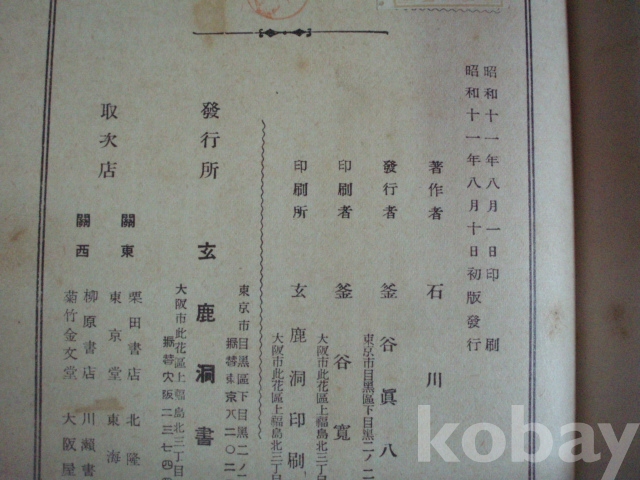 昭和十一年八月一日印刷
昭和十一年八月十日初版發行
著作者 石川
發行者 釜谷眞八
東京市目黑區下目黑二ノ二
印刷者 釜谷寛
大阪市此花區上福島北三丁目
印刷所 玄鹿洞印刷
大阪市此花區上福島北三丁目
發行所 玄鹿洞書
東京市目黑區下目黑二ノ二
振替東京八二〇二
大阪市此花區上福島北三丁目
振替大阪二三七四
取次店
關東 栗田書店 北隆
東京堂 東海
關西 柳原書店 川瀨書
菊竹金文堂 大阪屋
kobay